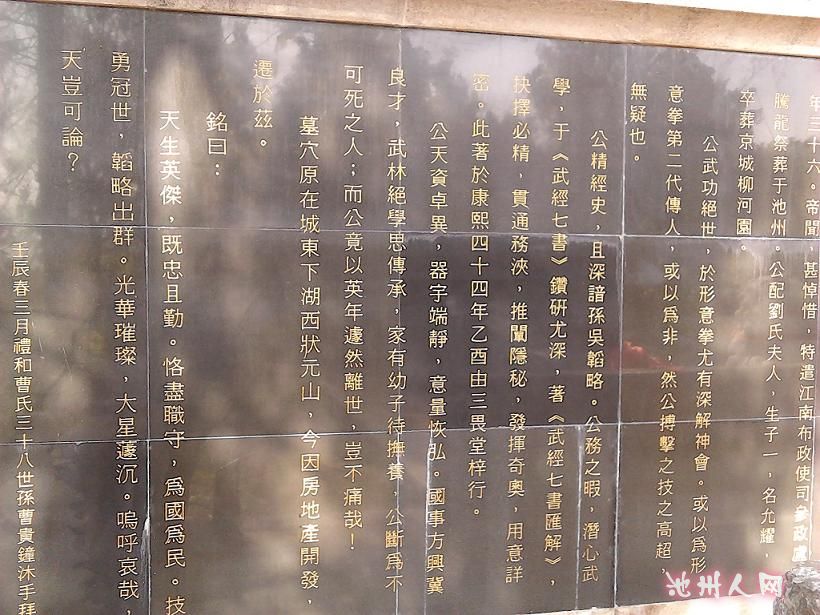 年三十六。帝聞，甚悼惜，特遣江南布政使司參政盧
騰龍祭葬于池州。公配劉氏夫人，生子一，名允耀，
卒葬京城柳河園。
公武功絕世，於形意拳尤有深解神會。或以爲形
意拳第二代傳人，或以爲非，然公搏擊之技之高超，
無疑也。
公精經史，且深諳孫吳韜略。公務之暇，潛心武
學，于《武經七書》鑽研尤深，著《武經七書匯解》，
抉擇必精，貫通務浹，推闡隱秘，發揮奇奧，用意詳
密。此著於康熙四十四年乙酉由三畏堂梓行。
公天資卓異，器宇端靜，意量恢弘。國事方興冀
良才，武林絕學思傳承，家有幼子待撫養，公斷爲不
可死之人；而公竟以英年遽然離世，豈不痛哉！
墓穴原在城東下湖西狀元山，今因房地產開發，
遷於茲。
銘曰：
天生英傑，既忠且勤。恪盡職守，爲國爲民。技
勇冠世，韜略出群。光華璀璨，大星蘧沉。嗚呼哀哉，
天豈可論？
壬辰春三月禮和曹氏三十八世孫曹貴鐘沐手拜
池州人网